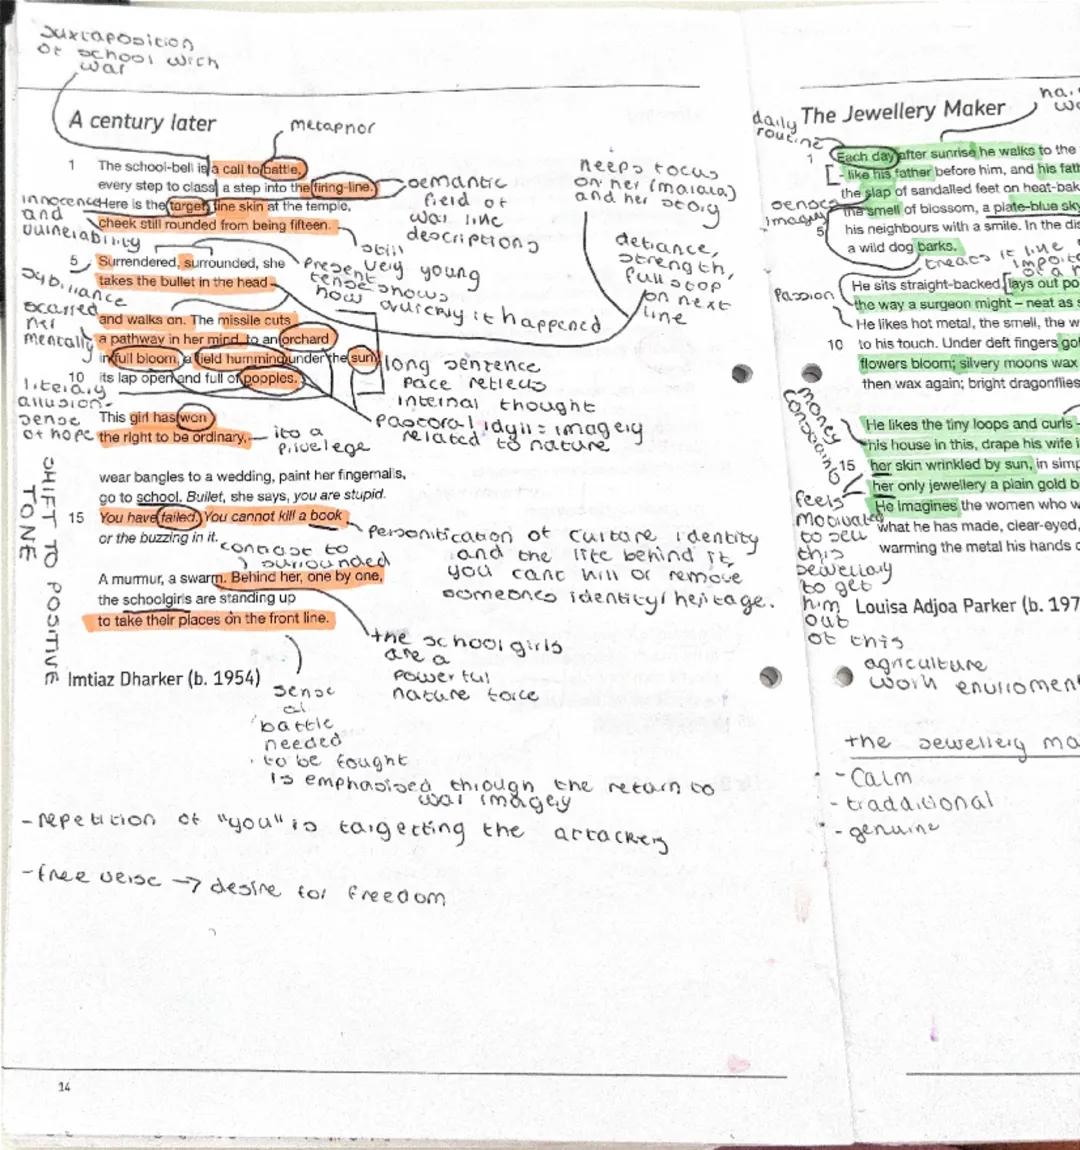 Juxtaposition
of school with
war
A century later
metaphor
1 The school-bell is a call to battle,
every step to class, a step into the firing-line.
Here is the target, fine skin at the temple,
cheek still rounded from being fifteen.
semantic
field of
war like
descriptions
innocence
and
vulnerability
still
very young
5 Surrendered, surrounded, she
takes the bullet in the head
Present
tense shows
how quickly it happened
keeps focus
on her (malala)
and her story
defiance,
strength,
full stop
on next
line
Sybillance
scarred
her
mentally
and walks on. The missile cuts
a pathway in her mind, to an orchard
in full bloom, a field humming under the sun,
10 its lap open and full of poppies.
long sentence
pace reflects
internal thought
Pastoral idyll = imagery
related to nature
literary
allusion-
sense
of hope
This girl has won
the right to be ordinary,
its a
privelege
wear bangles to a wedding, paint her fingernails,
go to school. Bullet, she says, you are stupid.
15 You have failed. You cannot kill a book
or the buzzing in it.
SHIFT TO POSITIVE
TONE
Personification of culture identity
and the life behind it,
you cant kill or remove
someones identity/heritage.
contrast to
surrounded
A murmur, a swarm. Behind her, one by one,
the schoolgirls are standing up
to take their places on the front line.
the school girls
are a
powerful
nature force
Imtiaz Dharker (b. 1954)
sense
of
battle
needed
to be fought
is emphasised through the return to
war imagery
- repetition of "you" is targetting the attackers
- free verse → desire for freedom
14
daily
routine
The Jewellery Maker
1 Each day after sunrise he walks to the
- like his father before him, and his fath
the slap of sandalled feet on heat-bak
the smell of blossom, a plate-blue sky
5 his neighbours with a smile. In the dis
a wild dog barks.
senses
imagery
treats it like
Passion
He sits straight-backed, lays out po
the way a surgeon might – neat as s
He likes hot metal, the smell, the w
10 to his touch. Under deft fingers gol
flowers bloom; silvery moons wax
then wax again; bright dragonflies
money
He likes the tiny loops and curls –
his house in this, drape his wife i
15 her skin wrinkled by sun, in simp
her only jewellery a plain gold b
He imagines the women who w
what he has made, clear-eyed,
warming the metal his hands
feels
motivated
to sell
this
jewellary
to get
him
out
of this
agriculture
work enviroment
Louisa Adjoa Parker (b. 197
the Jewellery ma
- Calm
- tradditional
- genuine